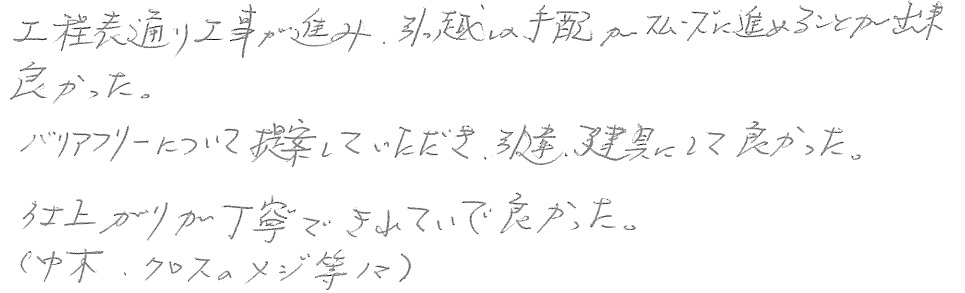 工程表通り工事が進み、引っ越しの手配がスムーズに進めることが出来
良かった。
バリアフリーについて提案していただき、引違い建具にして良かった。
仕上がりが丁寧できれいで良かった。
(巾木、クロスのメジ等々)